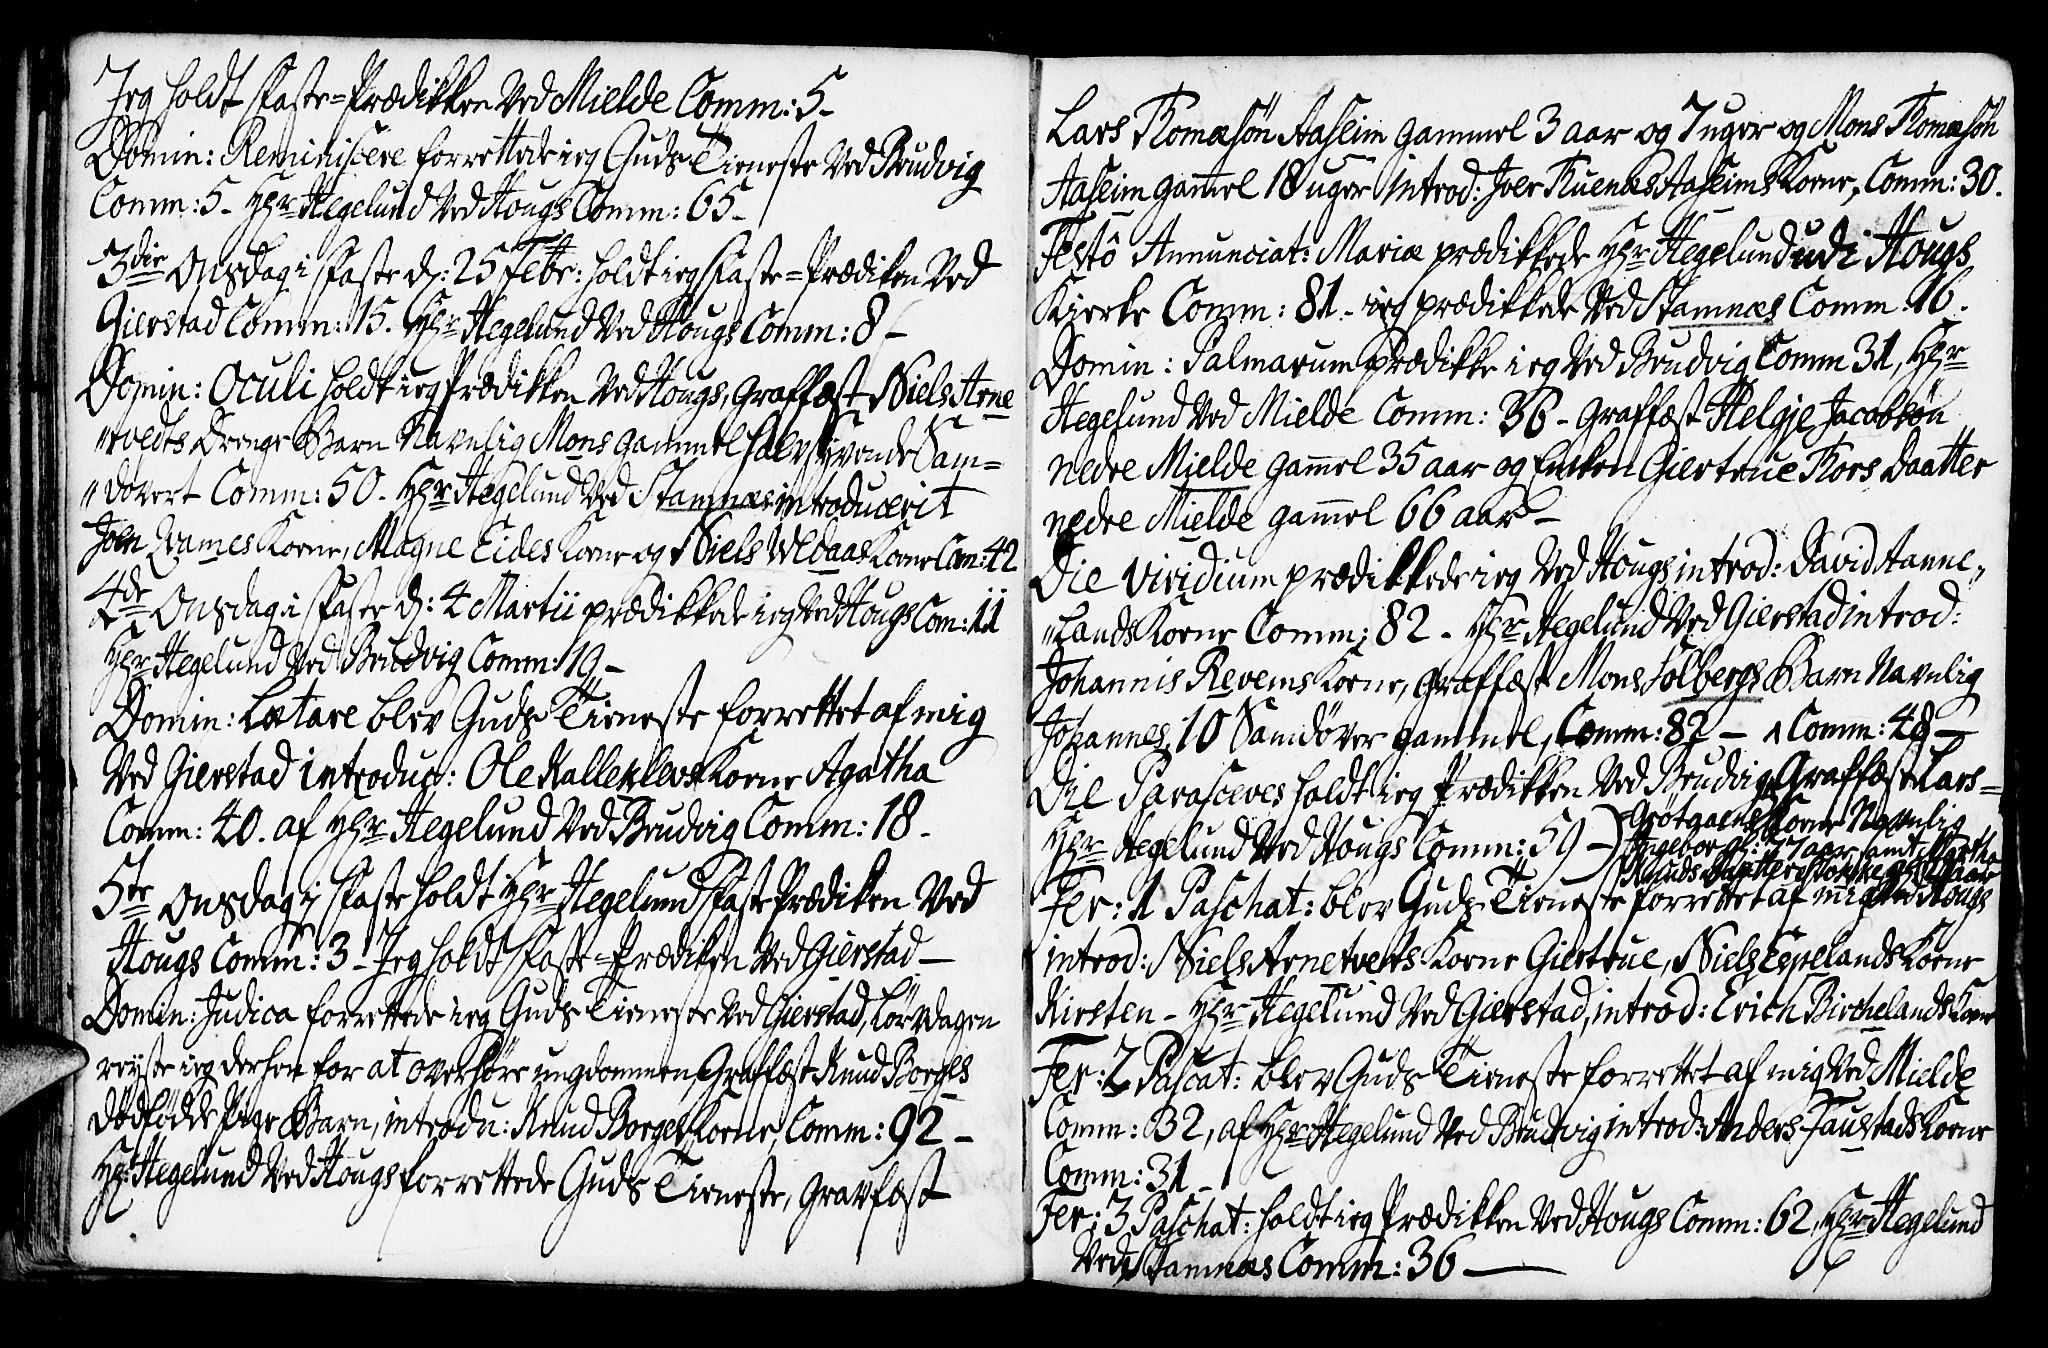 Jeg holdt Faste=Prædikken Ved Mielde Comm: 5-
Domin: Reminiscere forrettede ieg Guds Tieneste Ved Brudvig
Comm: 5- Hr Hegelund Ved Hougs Comm: 65-
3die Onsdag i Faste d: 25 Febr: holdt ieg Faste=Prædiken Ved
Gierstad Comm: 15. Hr Hegelund Ved Hougs Comm: 8-
Domin: Oculi holdt ieg Prædikken Ved Hougs, Graffæst Niels Arne
"tvedts Drenge Barn Navnlig Mons gammel halv Sivende Sam=
"dövert Comm: 50. Hr Hegelund Ved Stamnæs introducerit
Joen Qvames Kone, Magne Eides Kone og Niels Veldaas Kone Com: 42
4de Onsdag i Faste d: 4 Martii prædikkede ieg Ved Hougs Com: 11
Hr Hegelund Ved Brudvig Comm: 19-
Domin: Lætare blev Guds Tieneste forrettet af mig
Ved Gierstad introduc: Ole Kalleklevs Kone Agatha
Comm: 40. af Hr Hegelund Ved Brudvig Comm: 18-
5te Onsdag i Faste holdt Hr Hegelund Faste Prædiken Ved
Hougs Comm: 3- Jeg holdt Faste=Prædiken Ved Gierstad-
Domin: Judica forrettede ieg Guds Tieneste Ved Gierstad, Lörvdagen
reyste ieg derhen for at overhöre ungdommen, Graffæst Knud Borges
dödfödde Pige Barn, introdu: Knud Borges Kone, Comm: 92-
Hr Hegelund Ved Hougs forrettede Guds Tieneste, gravfæst
Lars Tomæsön Aaseim gammel 3 aar og 7 uger og Mons Tomæsön
Aaseim gammel 18 uger introd: Joer Aaseims Kone, Comm: 30.
Festô Annunciat: Mariæ prædikkede Hr Hegelund udi Hougs
Kierke Comm: 81- ieg prædikkede Ved Stamnæs Comm: 16.
Domin: Palmarum prædikke ieg Ved Brudvig Comm 31, Hr
Hegelund Ved Mielde Comm: 36- graffæst Helgje Jacobsön
nedre Mielde gammel 35 aar og Enken Giertrue Tors Daatter
nedre Mielde gammel 66 aar-
Die Viridium prædikkede ieg Ved Hougs introd: David Aanne,,
"lands Kone Comm: 82- Hr Hegelund Ved Gierstad introd:
Johannis Revems Kone, graffæst Mons Solbergs Barn Navnlig
Johannes, 10 Samdöver gammel, Comm: 82- Comm: 48-
Die Parasceves holdt ieg Prædikken Ved Brudvig Graffæst Lars=
Hr Hegelund Ved Hougs Comm: 59-) Kone Navnlig
Ingeborg 77 aar samt Martha
Knuds Daatter aar
Fer: 1 Paschat: blev Guds Tieneste forrettet af mig Ved Hougs
introd: Niels Arnetvedts Kone Giertrue, Niels Espelands Kone
Kirsten- Hr Hegelund Ved Gierstad, introd: Erich Birchelands Kone
Fer: 2 Pascat: blev Guds Tieneste forrettet af mig Ved Mielde
Comm: 32, af Hr Hegelund Ved Brudvig introd: Anders Faustads Kone
Comm: 31-
Fer: 3 Paschat: holdt ieg Prædikken Ved Hougs Comm: 62, Hr Hegelund
Ved Stamnæs Comm: 36-